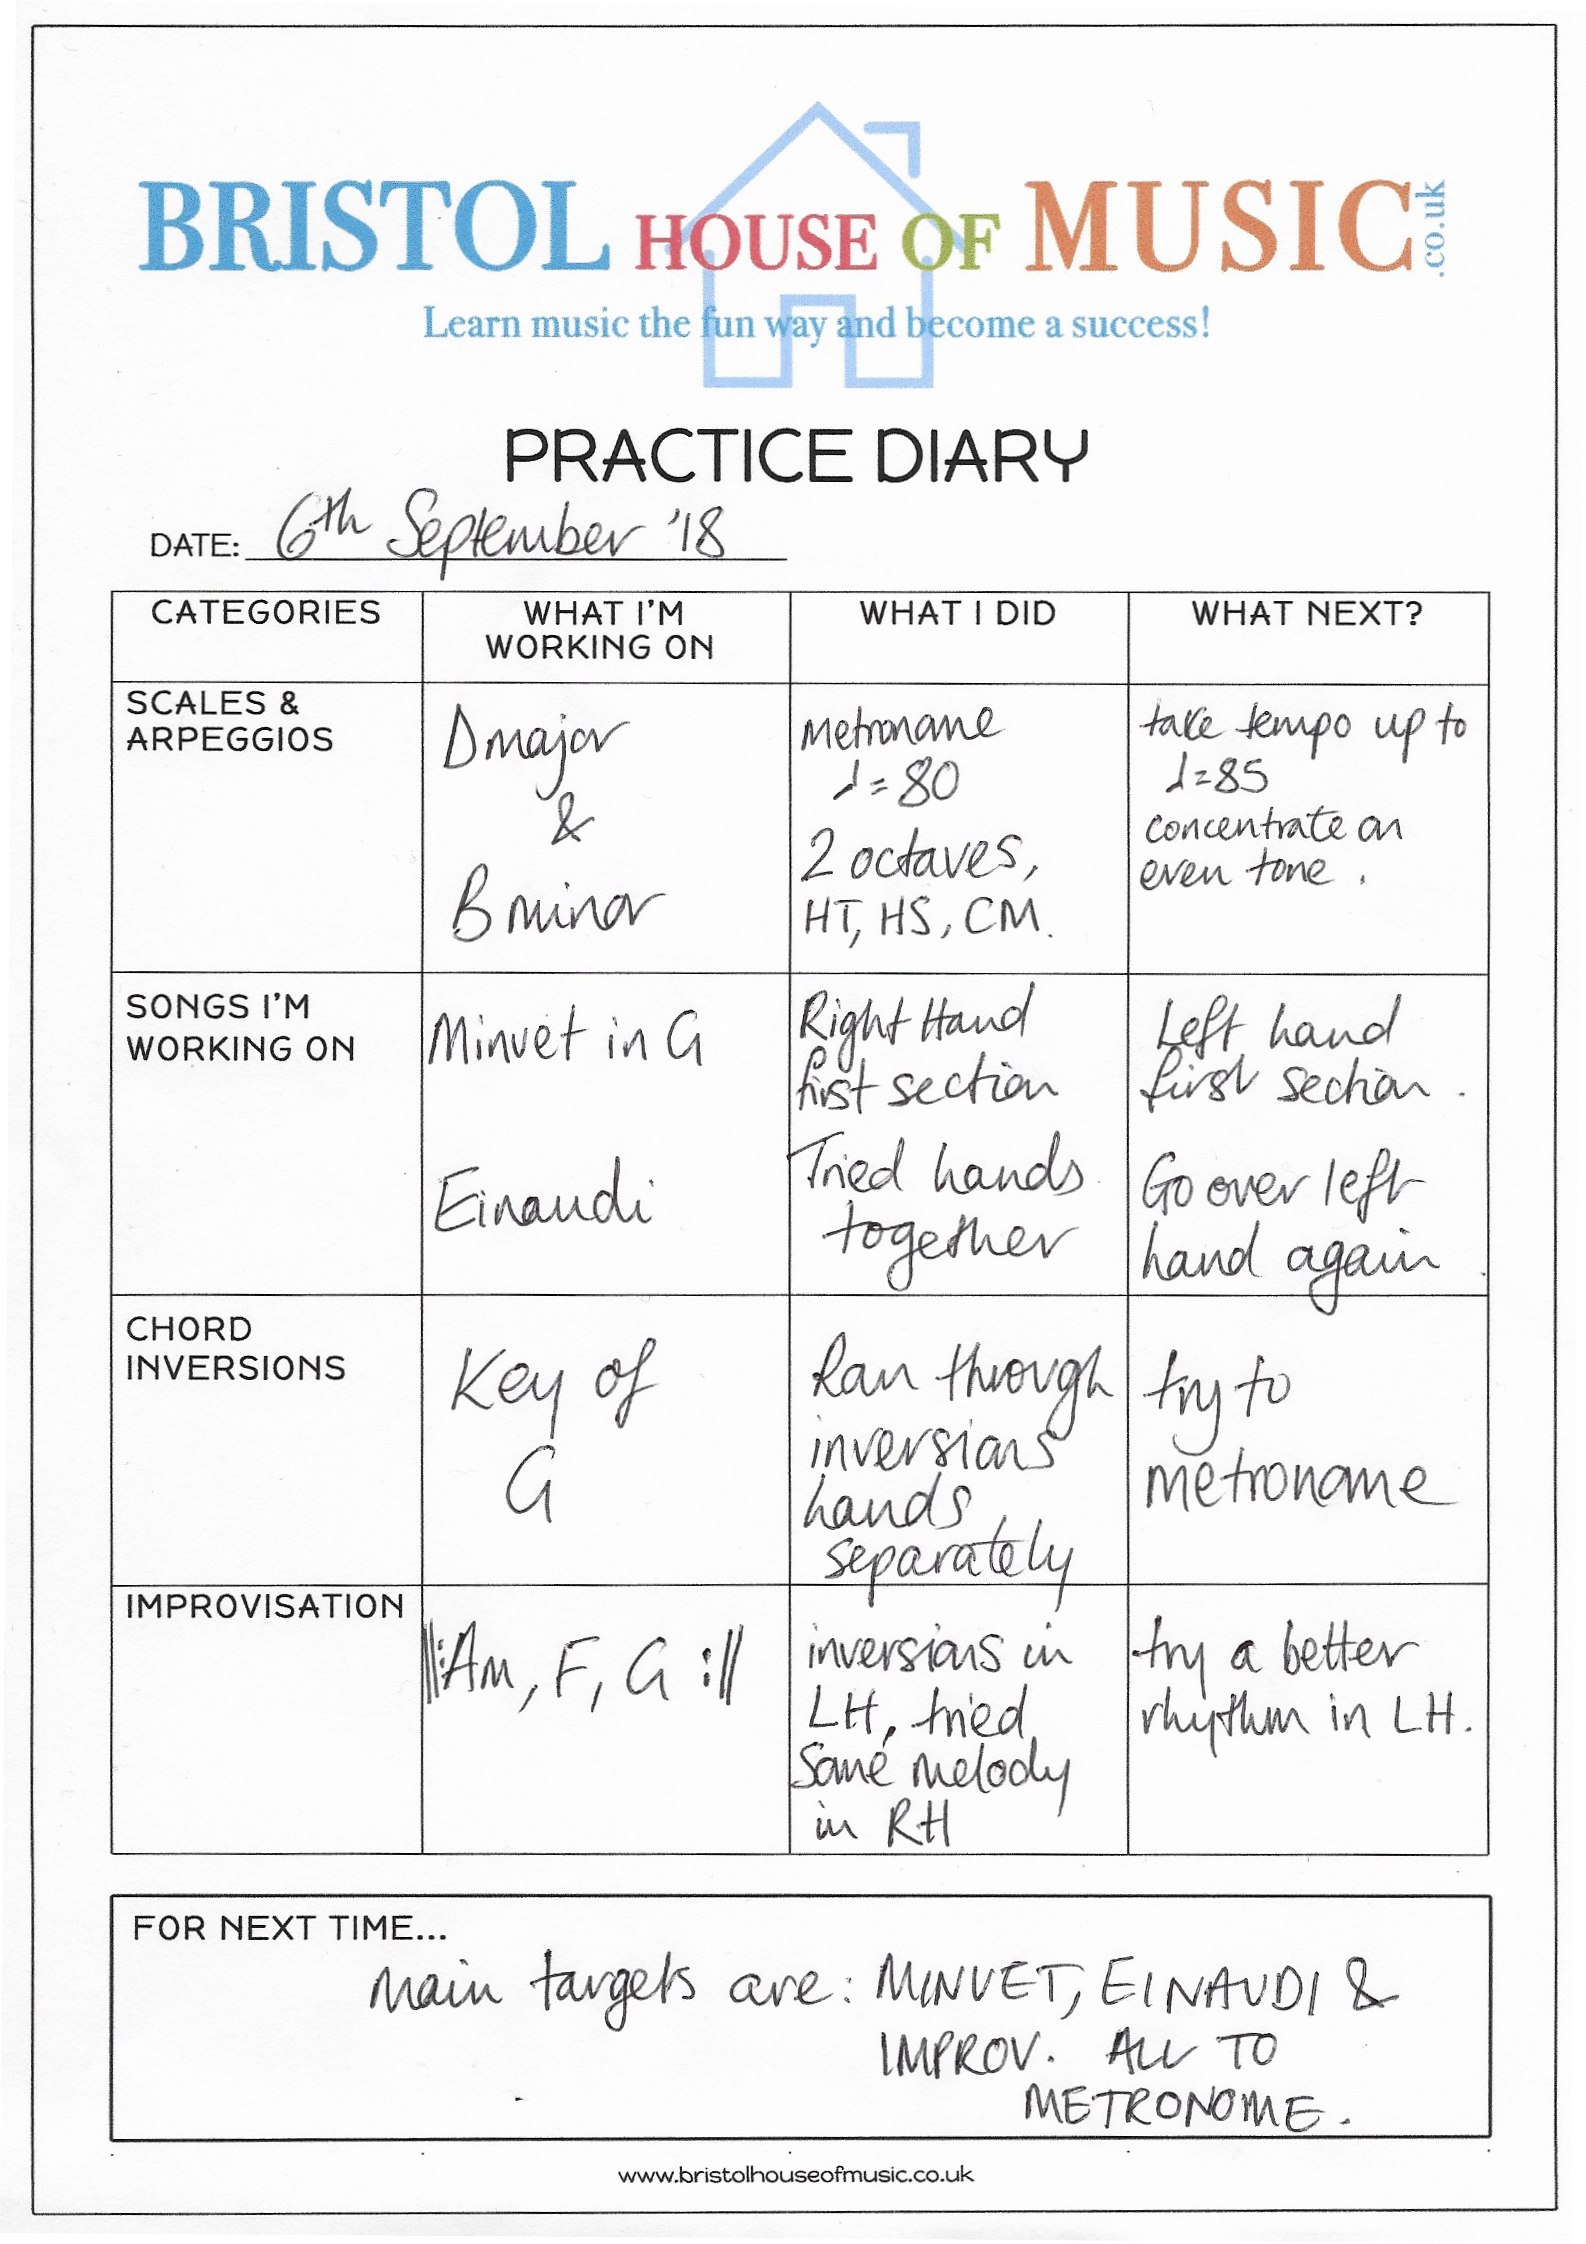 BRISTOL HOUSE OF MUSIC.co.uk
Learn music the fun way and become a success!
PRACTICE DIARY
DATE: 6th September '18
CATEGORIES
WHAT I'M
WORKING ON
WHAT I DID
WHAT NEXT?
SCALES &
ARPEGGIOS
D major
&
B minor
Metronome
♩=80
2 octaves,
HT, HS, CM.
take tempo up to
♩=85
concentrate on
even tone.
SONGS I'M
WORKING ON
Minuet in G
Einaudi
Right Hand
first section
Tried hands
together
Left hand
first section.
Go over left
hand again.
CHORD
INVERSIONS
Key of
G
Ran through
inversions
hands
separately
try to
metronome
IMPROVISATION
||:Am, F, G :||
inversions in
LH, tried
some melody
in RH
try a better
rhythm in LH.
FOR NEXT TIME...
Main targets are: MINUET, EINAUDI &
IMPROV. ALL TO
METRONOME.
www.bristolhouseofmusic.co.uk